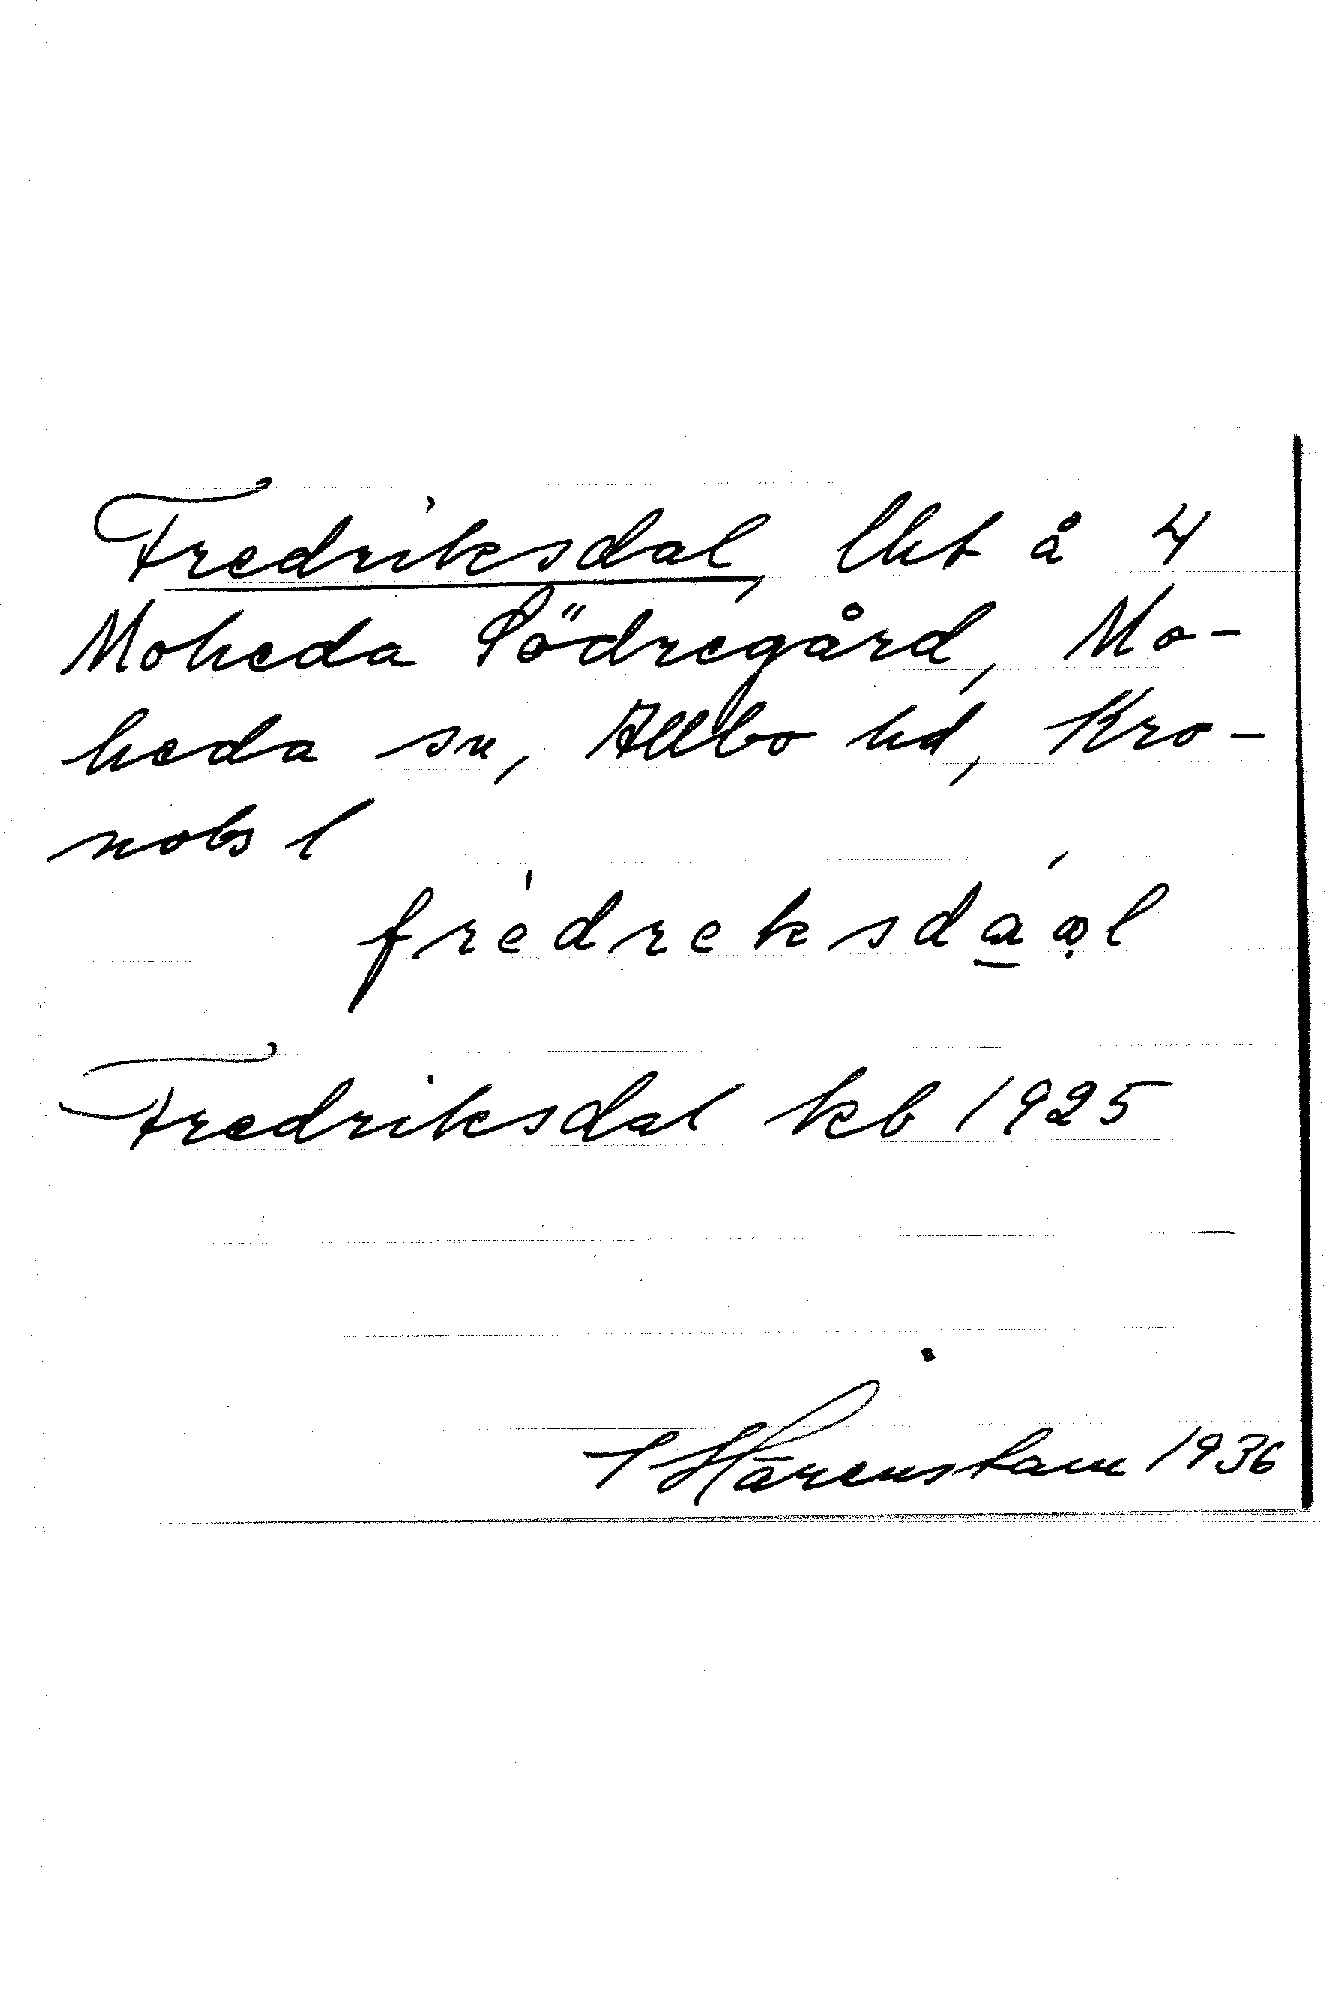 Fredriksdal, lht å 4
Moheda Södregård, Mo-
heda sn, Allbo hd, Kro-
nobs l
frèdreksda̲ạ́l
Fredriksdal kb 1925
Härenstam 1936